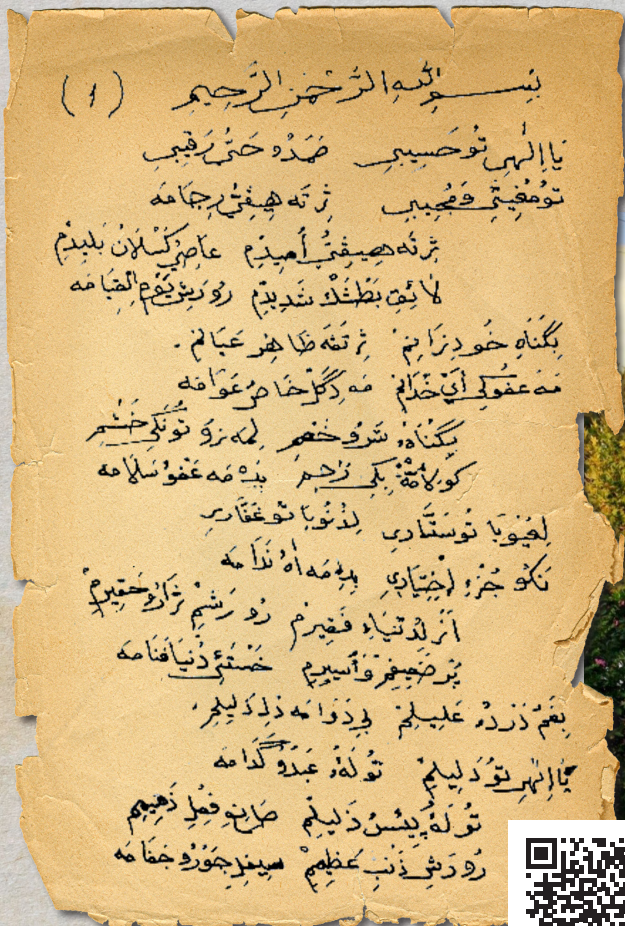 بِسْمِ اللهِ الرَّحْمٰنِ الرَّحِيمِ (١)
يَا اِلٰهِى تُو حَسِيبِى صَمَدُ و حَىُّ رَقِيبِى
تُو مُغِيثِى وَ مُجِيبِى ژِ تَه هِيفِىُّ رِجَا مَه
ژِ تَه هِيفِىُّ اُمِيدِم عَاصِىُ كَسْلَانُ بَلِيدِم
لَائِقِ بَطْشَكْ شَدِيدِم رُو رَشِ يَوْمِ الْقِيَامَه
بِگُنَاهِ خُو دِزَانِم ژِ تَفَه ظَاهِر عَيَانِم
مَه عَفُو كِى اَىْ خُدَانِم مَه دِگَلْ خَاصُ عَوَامَه
بِگُنَاهْ شَرُو خَصِم لِمَه نَزَو تُو نَكِى خَشْمِ
بِكِى رَحِمِ بِدِه مَه عَفُو سَلَامَه
لِعُيُوبَا تُو سَتَّارِى لِذُنُوبَا تُو غَفَّارِى
نَكُو جُزْءِ اِخْتِيَارِى بِدِه مَه اٰهُ نَدَامَه
اَز لِدُنْيَاءِ فَقِيرِم رُو رَشِم ژَارُ و حَقِيرِم
پُر ضَعِيفِم وَ اَسِيرِم خَسْتَئِى دُنْيَا فَنَامَه
بِغَمُ دَرْدُ عَلِيلِم بِى دَوَا مَه ذِلِ دَلِيلِم
يَا اِلٰهِى تُو دَلِيلِم تُو لَهُ عَبْدُ و گَدَامَه
تُو لَهُ بِئْسُ ذَلِيلِم فِعْلِ ذَمِيمِم
رُو رَشِ ذَنْبِ عَظِيمِم سِيفِلِ جَوْرُ و جَفَامَه